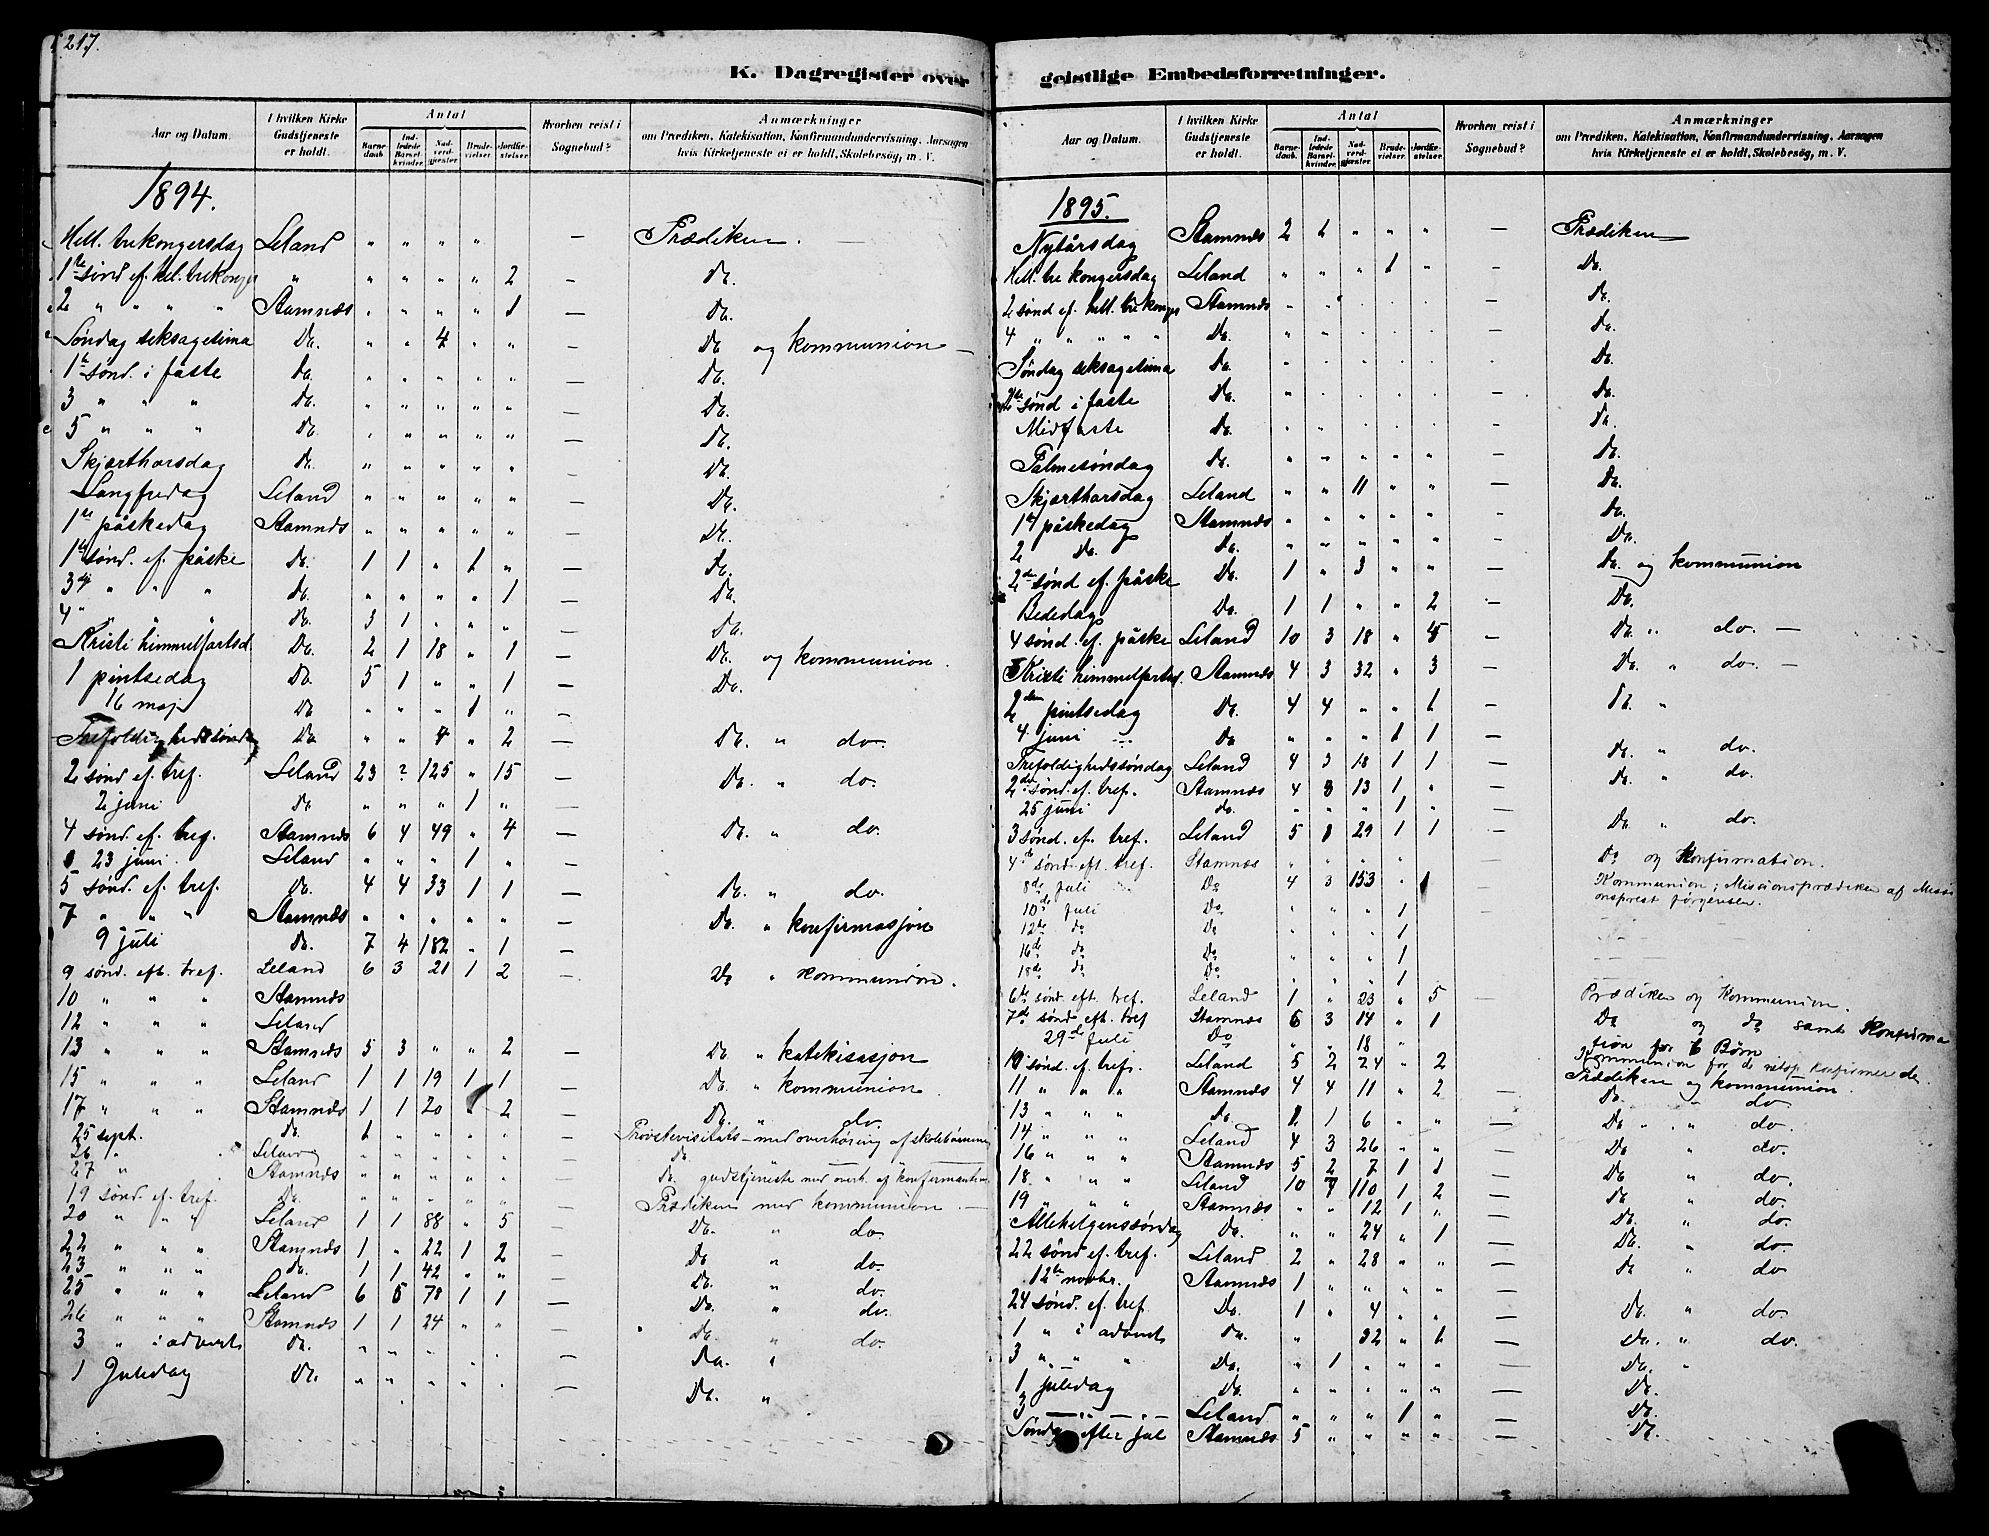 217.
K. Dagregister over
Aar og Datum.
I hvilken Kirke Gudstjeneste er holdt.
Antal
Barnedaab.
Indledede Barselkvinder.
Nadverdgjester.
Brudevielser.
Jordfæstelser.
Hvorhen reist i Sognebud?
Anmærkninger
om Prædiken, Katekisation, Konfirmandundervisning, Aarsagen
hvis Kirketjeneste ei er holdt, Skolebesög, m. V.
1894.
Hell. trekongersdag Leland " " " " – Prædiken. –
1ste sønd ef. hel. trekonger " " " " " 2 – Do.
2 " " " " Stamnæs " " " " 1 – Do.
Søndag seksagesima Do. " " 4 " " – Do og kommunion –
1ste sønd. i faste Do. " " " " " – Do.
3 " " " Do. " " " " " – Do.
5 " " " Do. " " " " " – Do.
Skjærthorsdag Do. " " " " " – Do.
Langfredag Leland " " " " " – Do.
1ste påskedag Stamnæs " " " " " – Do.
1ste sønd. ef. påske Do. 1 1 " 1 " – Do.
3dje " " " Do. " " " " 1 – Do.
4 " " " Do. 3 1 " " " – Do.
Kristi himmelfartsd. Do. 2 1 18 " 1 – Do. og kommunion.
1 pintsedag Do. 5 1 " " 1 – Do.
16 maj Do " " " 1 " –
Trefoldighedssøndag Do. " " 4 " 2 – Do. " do.
2 sønd ef. tref. Leland 23 ? 125 " 15 – Do. " do.
2 juni do. " " " 1 " –
4 sønd. ef. tref. Stamnæs 6 4 49 " 4 – Do. " do.
23 juni. Leland " " " 1 " –
5 sønd. ef. tref. Do. 4 4 33 1 1 – Do. " do.
7 " " " Stamnæs " " " " " – Do. " konfirmasjon
9 juli Do. 7 4 182 " 1 –
9 sønd. eft. tref. Leland 6 3 21 1 2 – Do " kommunion.
10 " " " Stamnæs
12 " " " Leland
13 " " " Stamnæs 5 3 " " 2 – Do " katekisasjon
15 " " " Leland 1 1 19 1 1 – Do " kommunion
17 " " " Stamnæs 1 1 20 " 2 – Do. " do.
25 sept. Do. 1 " " " " – Provstevisitats – med overhøring af skolebørnene
26 " Leland " " " " " – Do
27 " Stamnæs " " " " " – Do. gudstjeneste med overh. af konfirmanterne
19 sønd. ef. tref. Do. " " " " " – Prædiken med kommunion. –
20 " " " Leland 1 1 88 " 5 – Do. " do.
22 " " " Stamnæs 1 " 22 1 2 – Do " do.
23 " " " Do. 1 1 42 " " – Do. " do.
25 " " " Leland 6 5 78 1 1 – Do. " do.
26 " " " Stamnæs 1 1 24 " " – Do. " do.
3 " i advent Do. " " " " " – Do. "
1 Juledag Do. " " " " " – Do. "
geistlige Embedsforretninger.
Aar og Datum.
I hvilken Kirke Gudstjeneste er holdt.
Antal
Barnedaab.
Indledede Barselkvinder.
Nadverdgjester.
Brudevielser.
Jordfæstelser.
Hvorhen reist i Sognebud?
Anmærkninger
om Prædiken, Katekisation, Konfirmandundervisning, Aarsagen
hvis Kirketjeneste ei er holdt, Skolebesög, m. V.
1895.
Nytårsdag Stamnæs 2 1 " " " – Prædiken
Hell. tre kongersdag Leland " " " 1 " – Do.
2 sønd ef. hell. tre konger Stamnæs " " " " " – Do.
4 " " " " " Do. " " " " " – Do.
Søndag seksagesima Do. " " " " " – Do.
2den sønd i faste Do. " " " " " – Do.
Midfaste Do. " " " " " – Do.
Palmesøndag Do. " " " " " – Do.
Skjærthorsdag Leland " " 11 " " – Do.
1ste påskedag Stamnæs " " " " " – Do.
2 Do. Do. " " " " " – Do.
2den sønd ef. påske Do. 1 " 3 " " – Do. og kommunion
Bededag Do. 1 1 " " 2 – Do.
4 sønd. ef. påske Leland 10 3 18 " 5 – Do. " do. –
Kristi himmelfartsd. Stamnæs 4 3 32 " 3 – Do. " do. –
2den pintsedag Do. 4 4 " " 1 – Do. "
4 juni Do " " " 1 1 –
Trefoldighedssøndag Leland 4 3 18 1 1 – Do. " do.
2den sønd. ef. tref. Stamnæs 4 3 13 1 " – Do. " do.
25 juni do. " " " 1 " –
3 sønd. ef. tref. Leland 5 8 29 1 1 – Do " do.
4de sønd. eft. tref. Stamnæs " " " " Do og Konfirmation.
8de Juli Do 4 3 153 " 1 Kommunion; Missionsprædiken af Missi
onsprest Jørgensen.
10de Juli Do " " " 1
12te do Do " " " 1
16de do Do " " " 1
18de do Do " " " 1
6te sønd. eft. tref. Leland 1 " 23 " 5 – Prædiken og Kommunion.
7de sønd. eft. tref Stamnæs 6 3 14 " 1 Do og do samt Konfirma
tion for 6 Børn
29de Juli Do " " 18 " Kommunion for de netop konfirmerede.
10 sønd. ef. tref. Leland 5 2 24 " 2 Prædiken og kommunion.
11 " " " Stamnæs 4 4 11 " 2 – Do. " do.
13 " " " Do. 1 1 6 " " – Do " do.
14 " " " Leland 4 3 26 " " – Do " do.
16 " " " Stamnæs 5 2 7 1 1 – Do " do.
18 " " " Leland 10 7 110 1 2 – Do " do.
19 " " " Stamnæs " " 12 1 " – Do. " do.
Allehelgenssøndag Do. " " 24 " 1 – Do. " do.
22 sønd ef. tref. Leland 2 " 28 " " – Do " do
12te novbr. Stamnæs 1 " " " " –
24 sønd. ef. tref. Do. 1 " 4 " " – Do. " do.
1 " i advent Do. " 32 " 1 – Do. " do.
3 " " " Do. " 1 " " " – Do. "
1 juledag Do. " " " " " – Do.
3 – " – Leland " " " 1 " – Do.
Søndag efter jul Stamnæs 5 " " " " – Do.